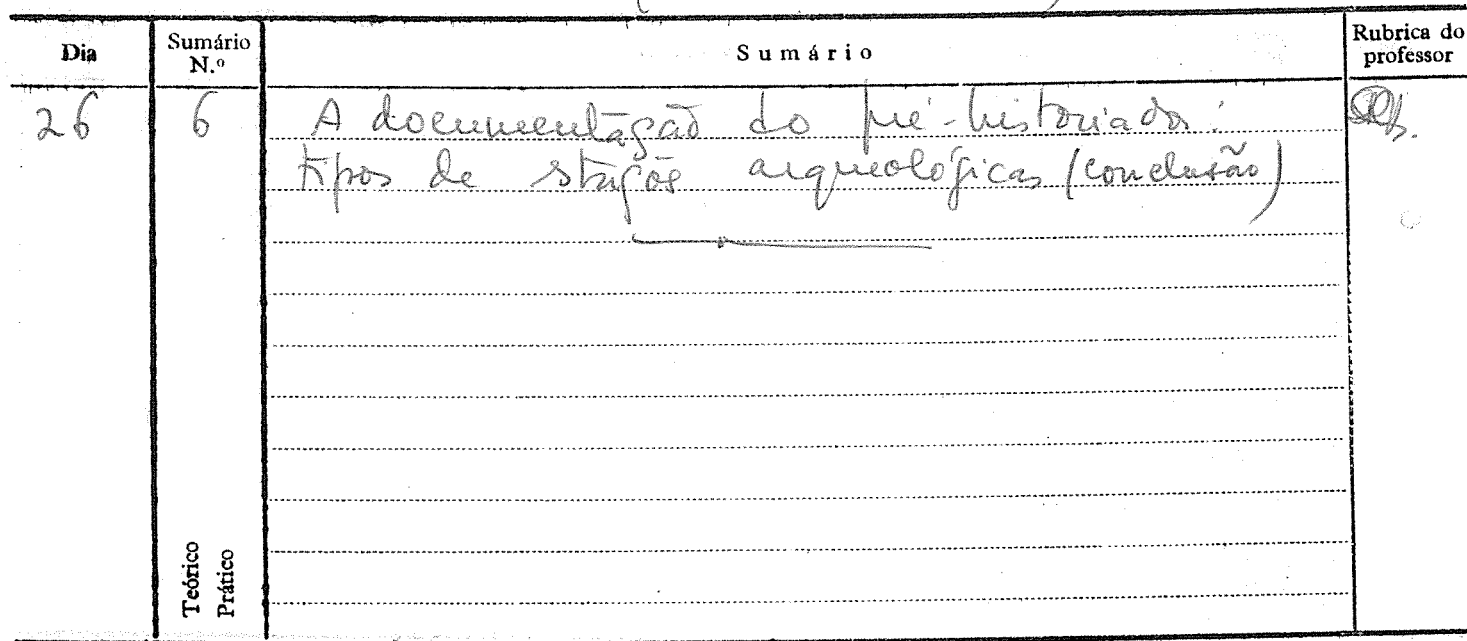 Dia Sumário N.º Sumário Rubrica do professor
26 6 A documentação do pré-historiador:
tipos de stações arqueológicas (conclusão)
Teórico
Prático